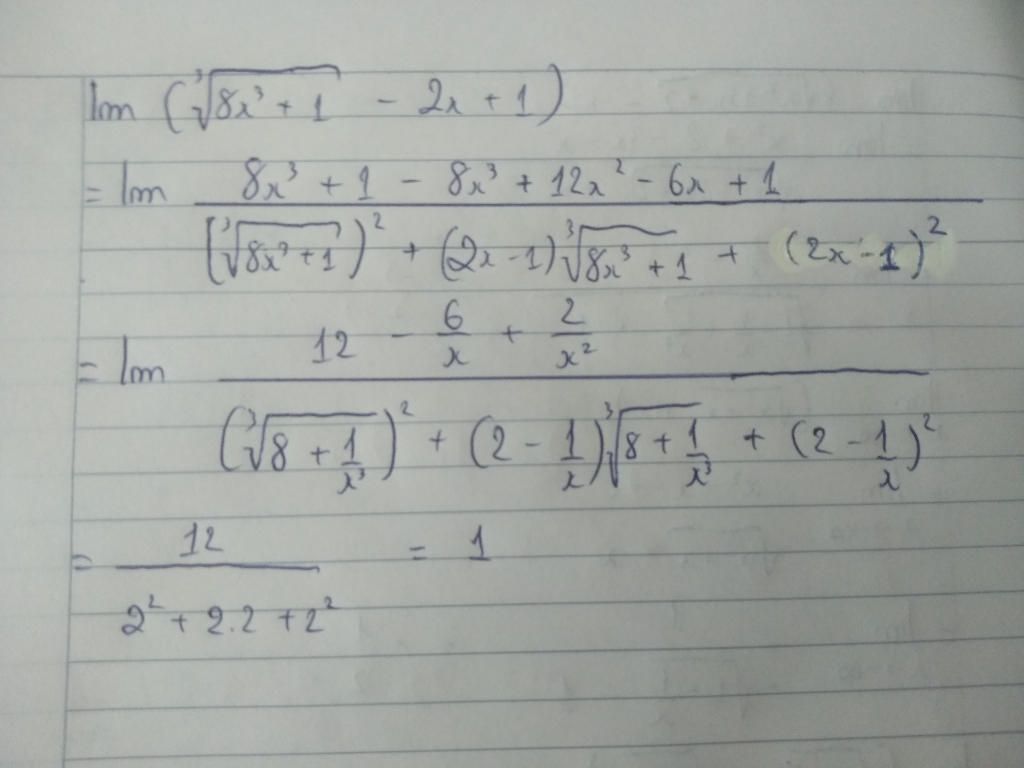 lim (∛(8x³ + 1) - 2x + 1)
= lim (8x³ + 1 - 8x³ + 12x² - 6x + 1) / ((∛(8x³ + 1))² + (2x - 1)∛(8x³ + 1) + (2x - 1)²)
= lim (12 - 6/x + 2/x²) / ((∛(8 + 1/x³))² + (2 - 1/x)∛(8 + 1/x³) + (2 - 1/x)²)
= 12 / (2² + 2.2 + 2²) = 1